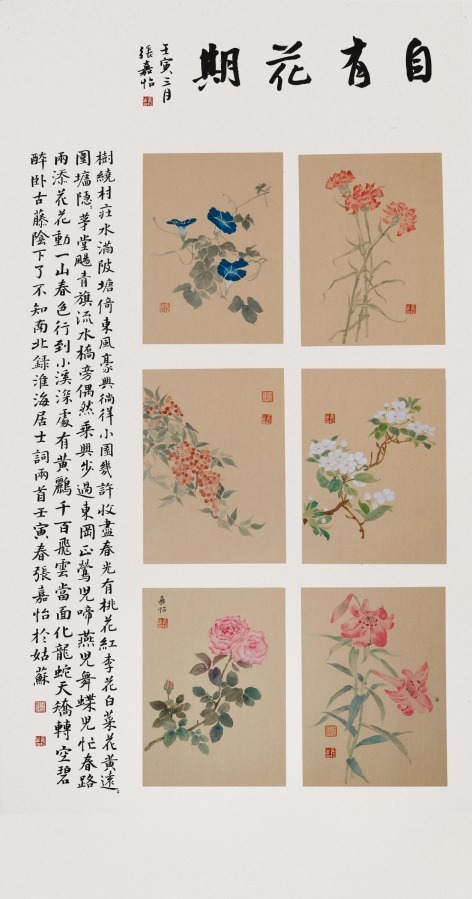 自有花期
壬寅三月
張嘉怡
樹繞村莊水滿陂塘倚東風豪興徜徉小園幾許收盡春光有桃花紅李花白菜花黃遠
圍墻隱〻茅堂颺青旗流水橋旁偶然乘興步過東岡正鶯兒啼燕兒舞蝶兒忙春路
雨添花花動一山春色行到小溪深處有黃鸝千百飛雲當面化龍蛇夭矯轉空碧
醉卧古藤陰下了不知南北錄淮海居士詞兩首壬寅春張嘉怡於姑蘇
嘉怡